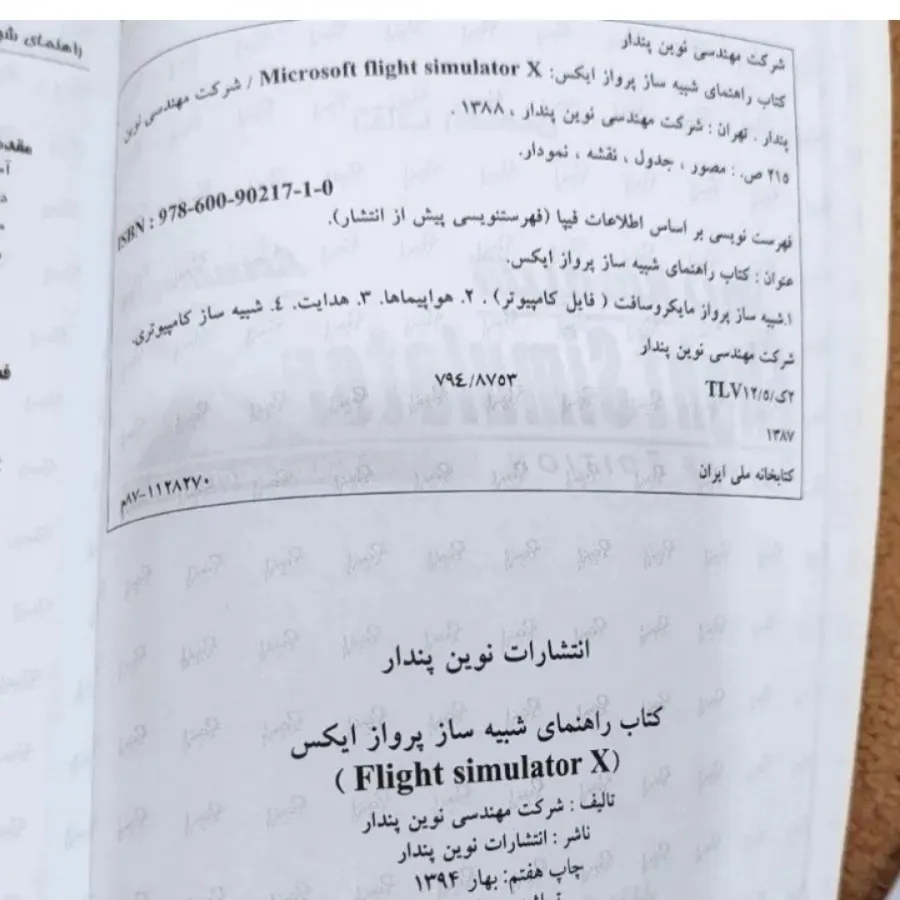 راهنمای
شرکت مهندسی نوین پندار
کتاب راهنمای شبیه ساز پرواز ایکس: Microsoft flight simulator X / شرکت مهندسی نوین
پندار . تهران : شرکت مهندسی نوین پندار ، ۱۳۸۸ .
۲۱۵ ص. : مصور ، جدول ، نقشه ، نمودار.
ISBN : 978-600-90217-1-0
فهرست نویسی بر اساس اطلاعات فیپا (فهرستنویسی پیش از انتشار).
عنوان : کتاب راهنمای شبیه ساز پرواز ایکس.
۱.شبیه ساز پرواز مایکروسافت ( فایل کامپیوتر) . ۲. هواپیماها. ۳. هدایت. ٤. شبیه ساز کامپیوتری.
شرکت مهندسی نوین پندار
۲ک/۵/TLV۱۲ ۷۹٤/۸۷۵۳
۱۳۸۷
کتابخانه ملی ایران ۱۱۲۸۲۷۰-۸۷م
انتشارات نوین پندار
کتاب راهنمای شبیه ساز پرواز ایکس
( Flight simulator X)
تالیف : شرکت مهندسی نوین پندار
ناشر : انتشارات نوین پندار
چاپ هفتم: بهار ۱۳۹۴